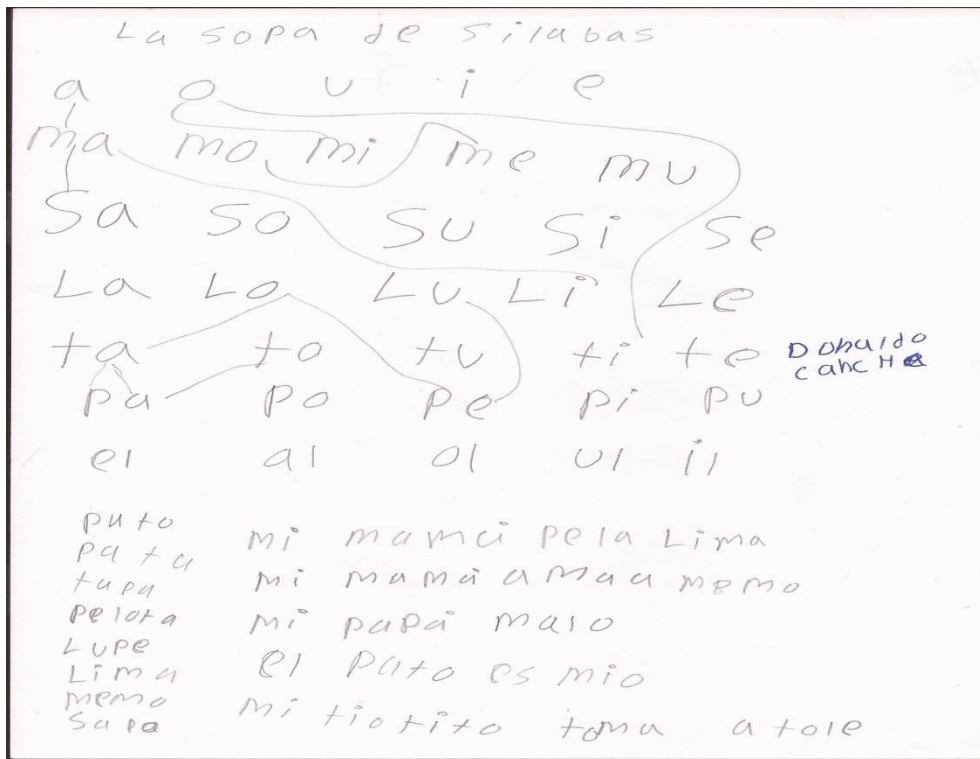 La sopa de silabas
a o u i e
ma mo mi me mu
Sa so su si se
La Lo Lu Li Le
ta to tu ti te
Donaldo
canche
pa po pe pi pu
el al ol ul il
pato
pata
tapa
pelota
Lupe
Lima
memo
Sapo
mi mamá pela Lima
mi mamá ama a memo
mi papá malo
el pato es mio
mi tio tito toma atole